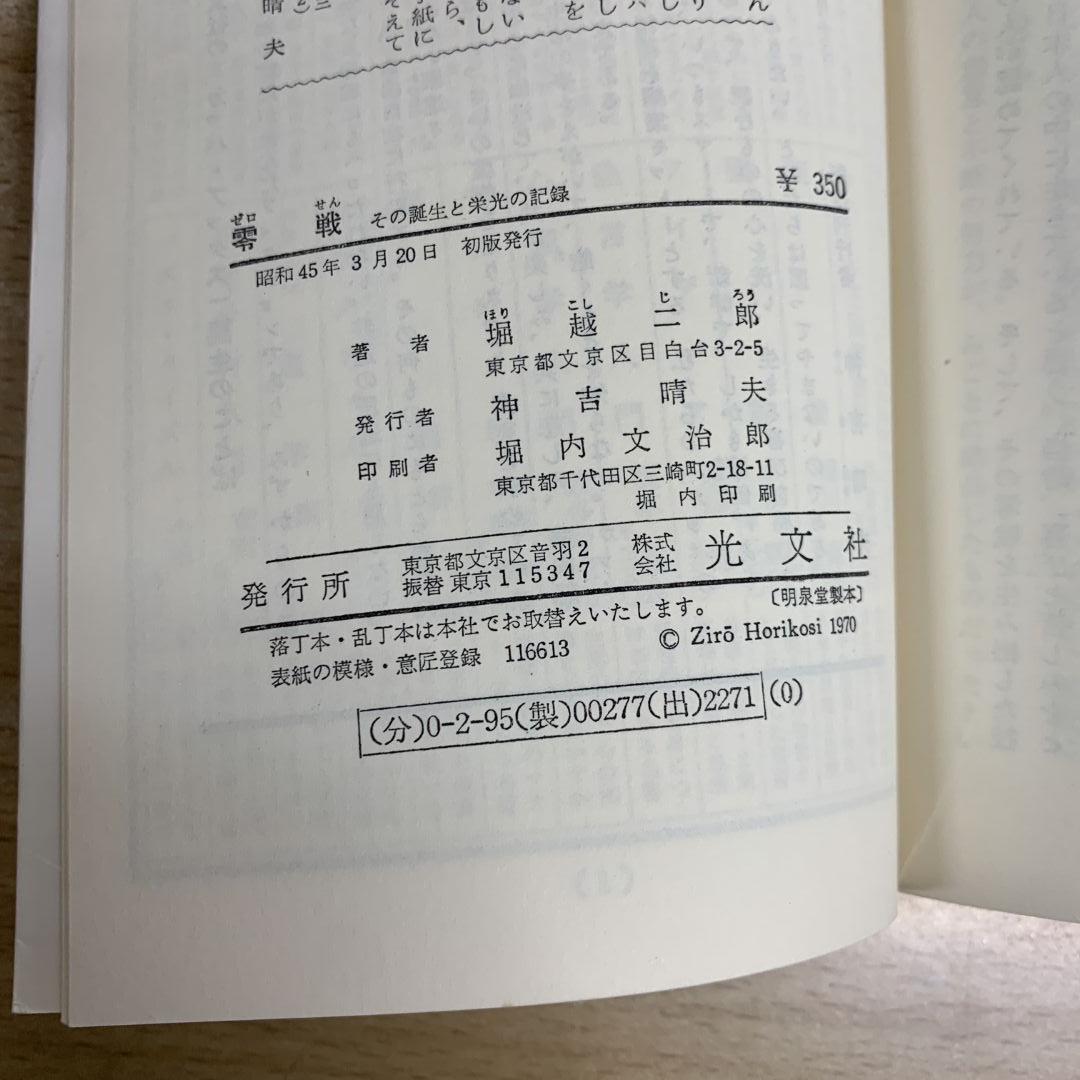 晴夫
零戦 その誕生と栄光の記録 ¥350
ゼロ せん
昭和45年3月20日 初版発行
ほり こし じ ろう
著者 堀越二郎
東京都文京区目白台3-2-5
発行者 神吉晴夫
印刷者 堀内文治郎
東京都千代田区三崎町2-18-11
堀内印刷
発行所 東京都文京区音羽2 株式会社 光文社
振替 東京115347
落丁本・乱丁本は本社でお取替えいたします。 〔明泉堂製本〕
表紙の模様・意匠登録 116613 © Zirō Horikosi 1970
(分)0-2-95(製)00277(出)2271(0)